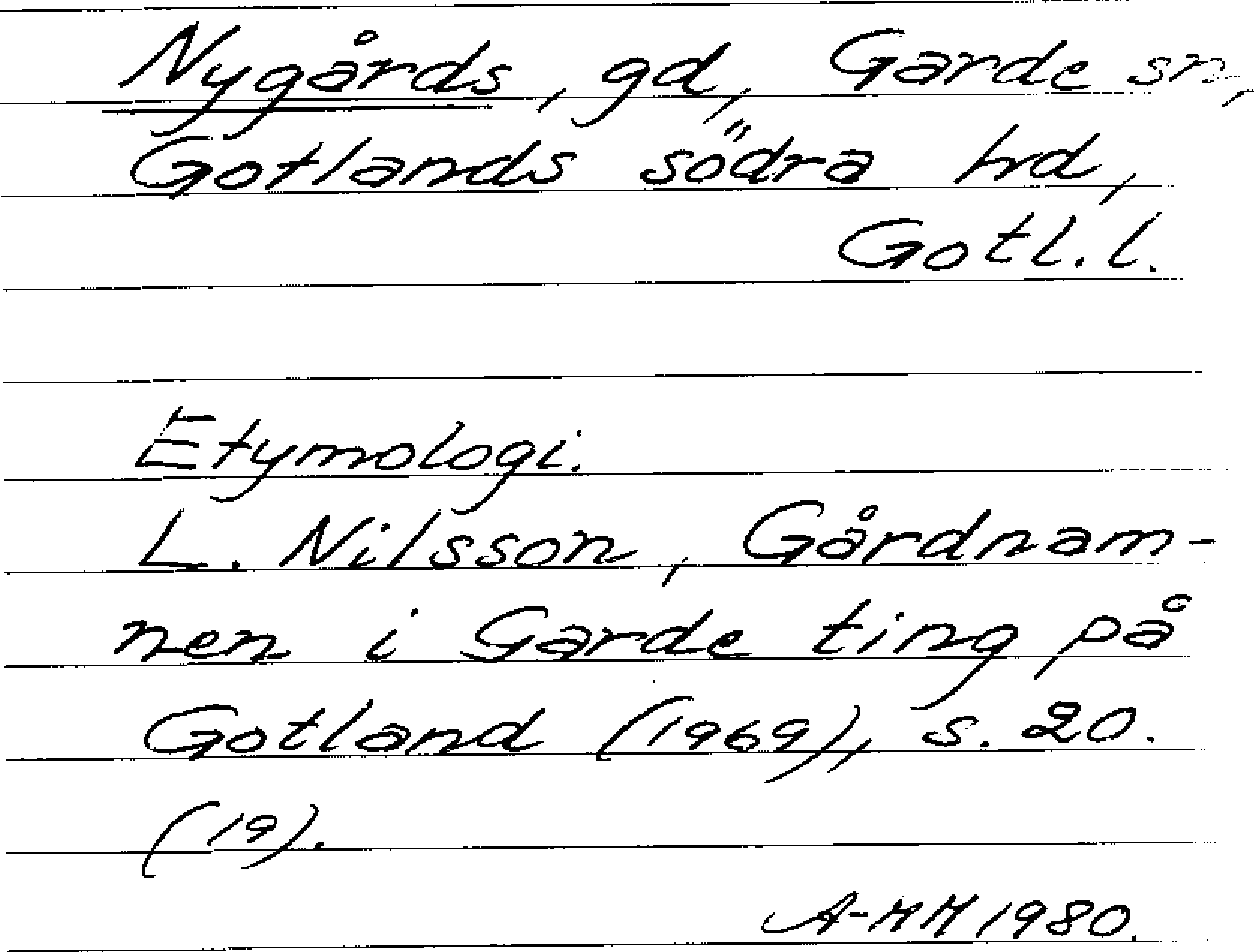 Nygårds, gd, Garde sn,
Gotlands södra hd,
Gotl. l.
Etymologi.
L. Nilsson, Gårdnam-
nen i Garde ting på
Gotland (1969), s. 20.
(19).
A-MM 1980.